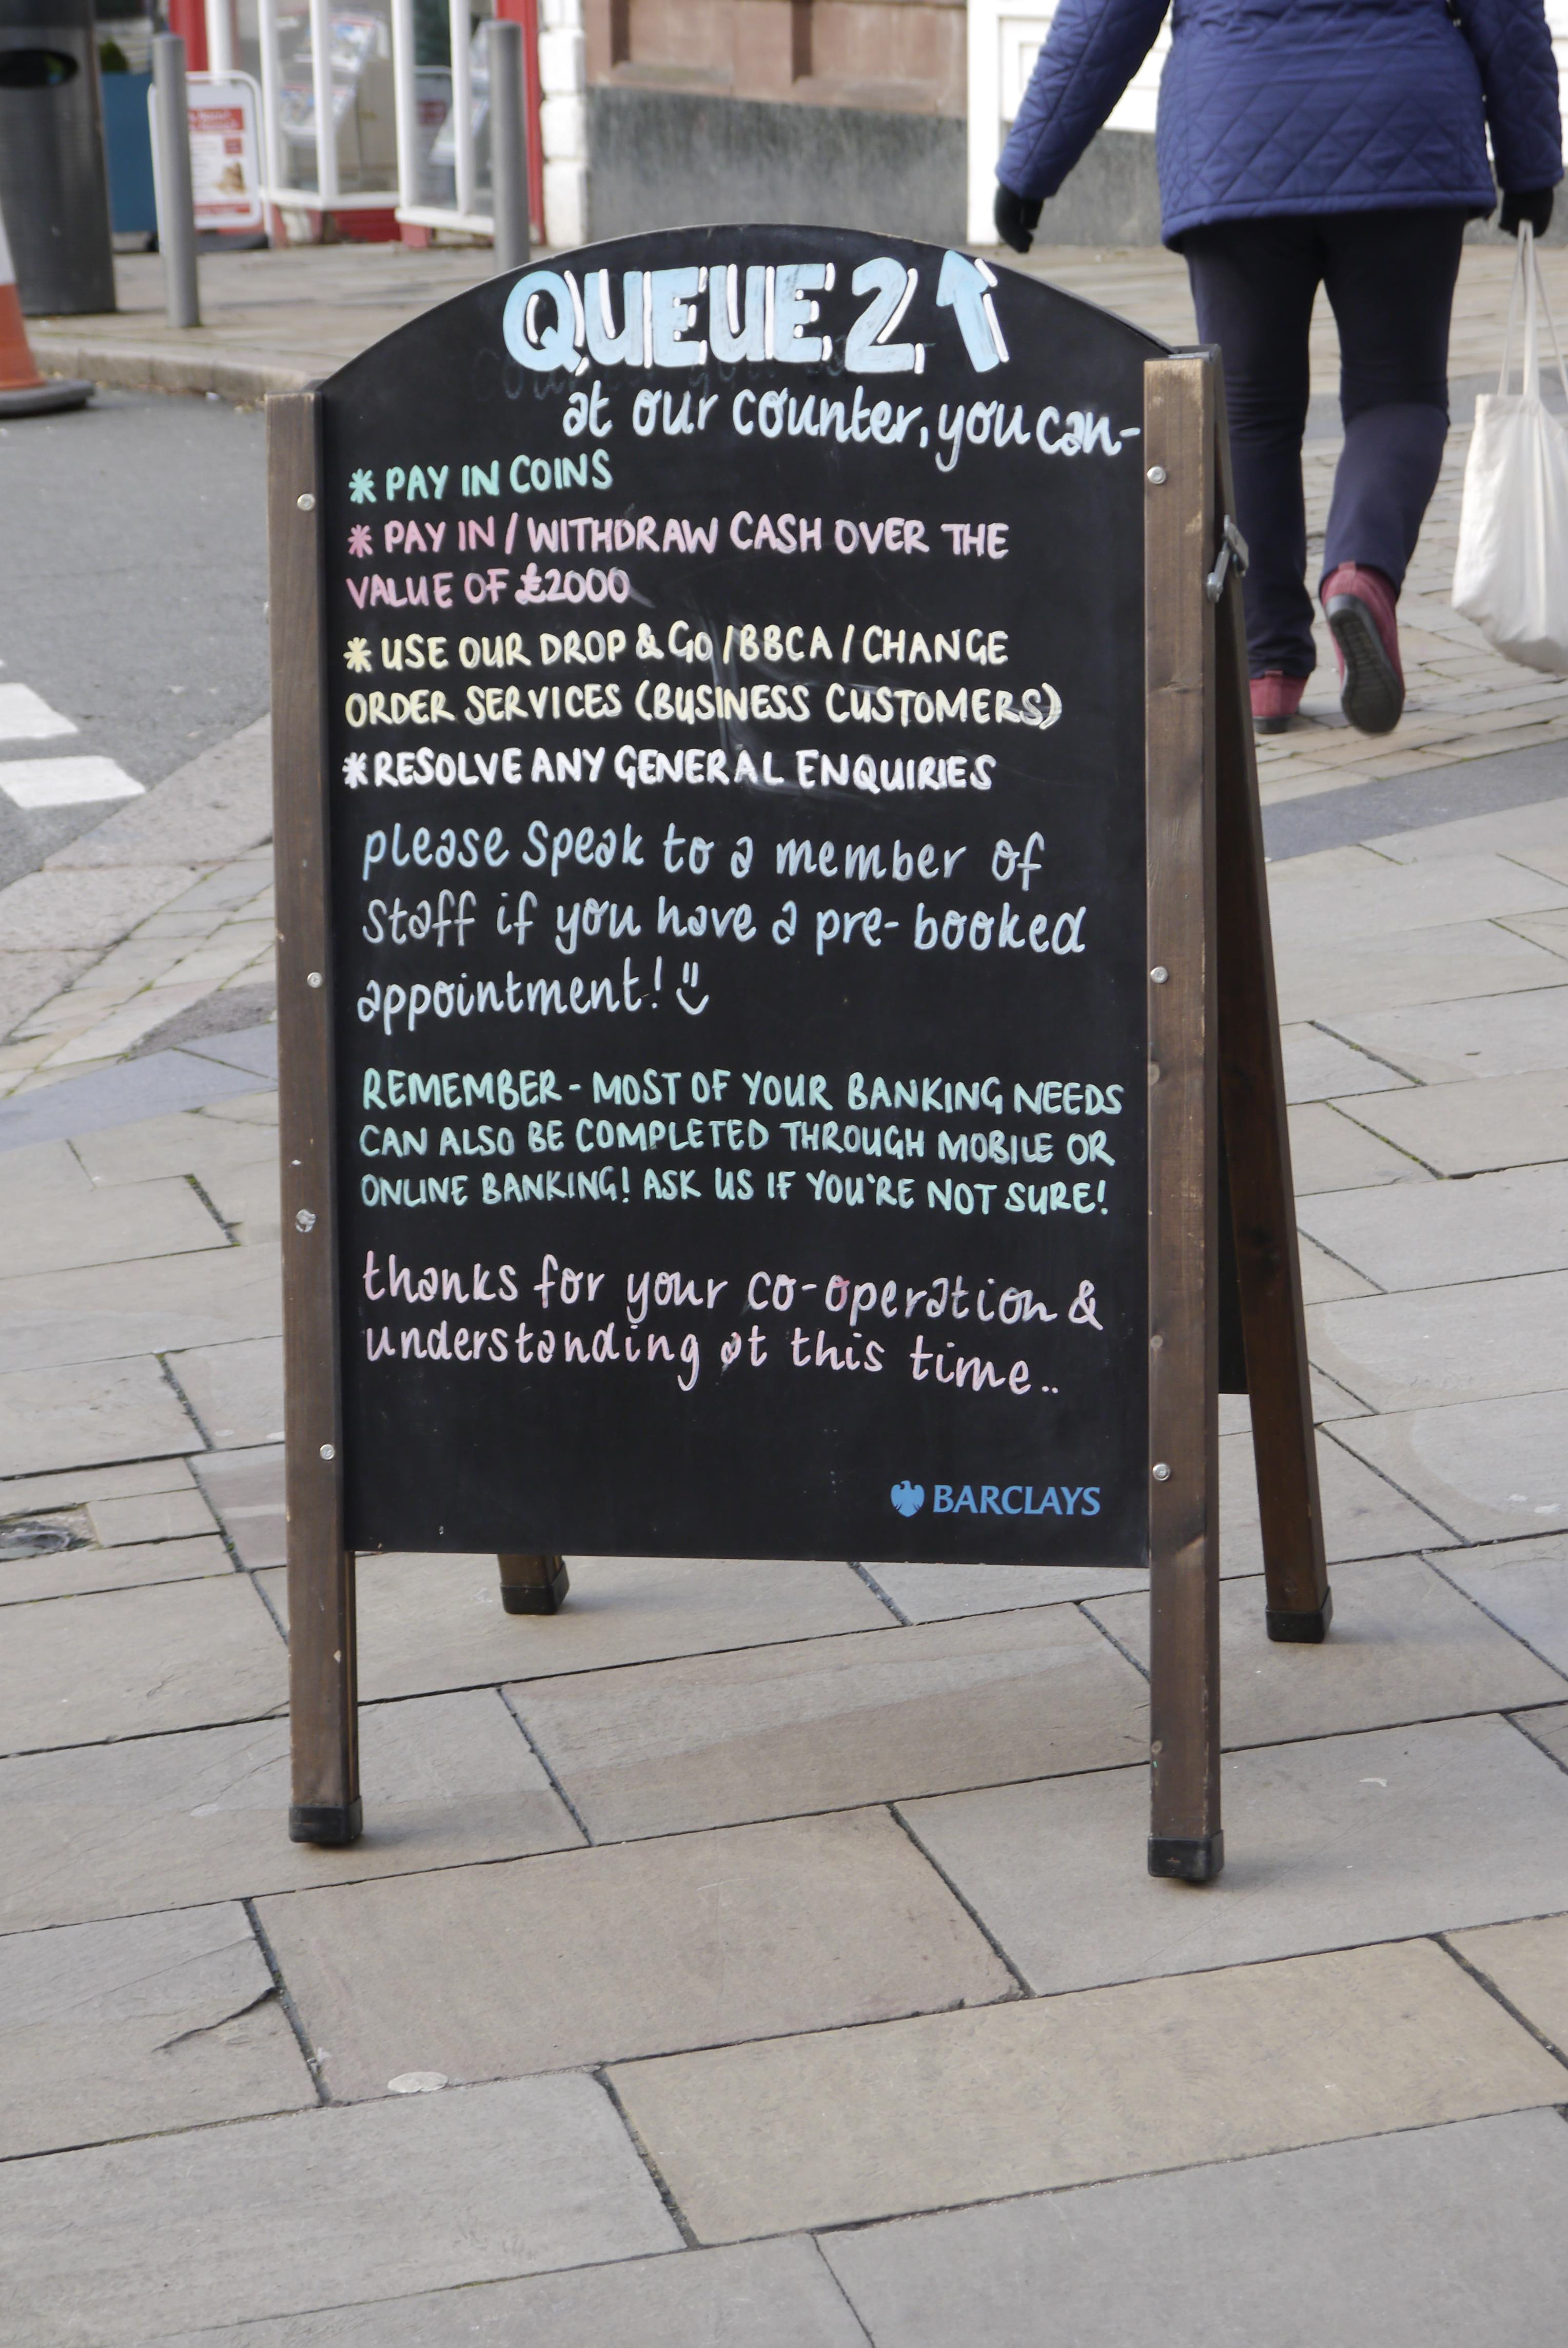 QUEUE 2 ↑
at our counter, you can-
* PAY IN COINS
* PAY IN / WITHDRAW CASH OVER THE
VALUE OF £2000
* USE OUR DROP & GO / BBCA / CHANGE
ORDER SERVICES (BUSINESS CUSTOMERS)
* RESOLVE ANY GENERAL ENQUIRIES
please speak to a member of
staff if you have a pre-booked
appointment!
REMEMBER - MOST OF YOUR BANKING NEEDS
CAN ALSO BE COMPLETED THROUGH MOBILE OR
ONLINE BANKING! ASK US IF YOU'RE NOT SURE!
thanks for your co-operation &
understanding at this time..
BARCLAYS